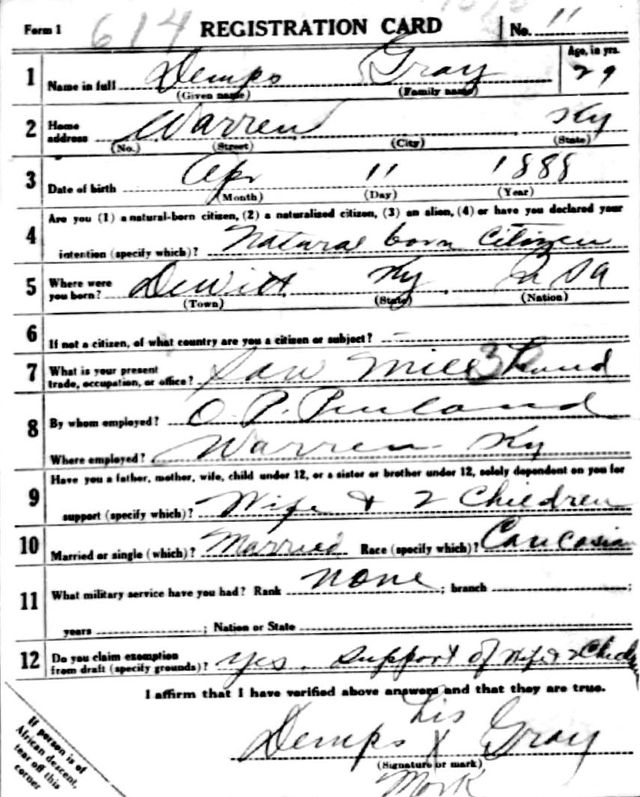 Form 1 614 REGISTRATION CARD No. 11
1 Name in full Demps Gray Age, in yrs. 29
(Given name) (Family name)
2 Home address Warren Ky
(No.) (Street) (City) (State)
3 Date of birth Apr 11 1888
(Month) (Day) (Year)
Are you (1) a natural-born citizen, (2) a naturalized citizen, (3) an alien, (4) or have you declared your
4 intention (specify which)? Natural born Citizen
5 Where were you born? Dewitt Ky USA
(Town) (State) (Nation)
6 If not a citizen, of what country are you a citizen or subject? –
7 What is your present trade, occupation, or office? Saw Mill Hand
8 By whom employed? O. P.
Where employed? Warren Ky
Have you a father, mother, wife, child under 12, or a sister or brother under 12, solely dependent on you for
9 support (specify which)? Wife & 2 Children
10 Married or single (which)? Married Race (specify which)? Caucasian
11 What military service have you had? Rank none ; branch ;
years ; Nation or State
12 Do you claim exemption from draft (specify grounds)? Yes. Support of Wife & 2 Child
I affirm that I have verified above answers and that they are true.
his
Demps X Gray
(Signature or mark)
Mark
If person is of
African descent,
tear off this
corner